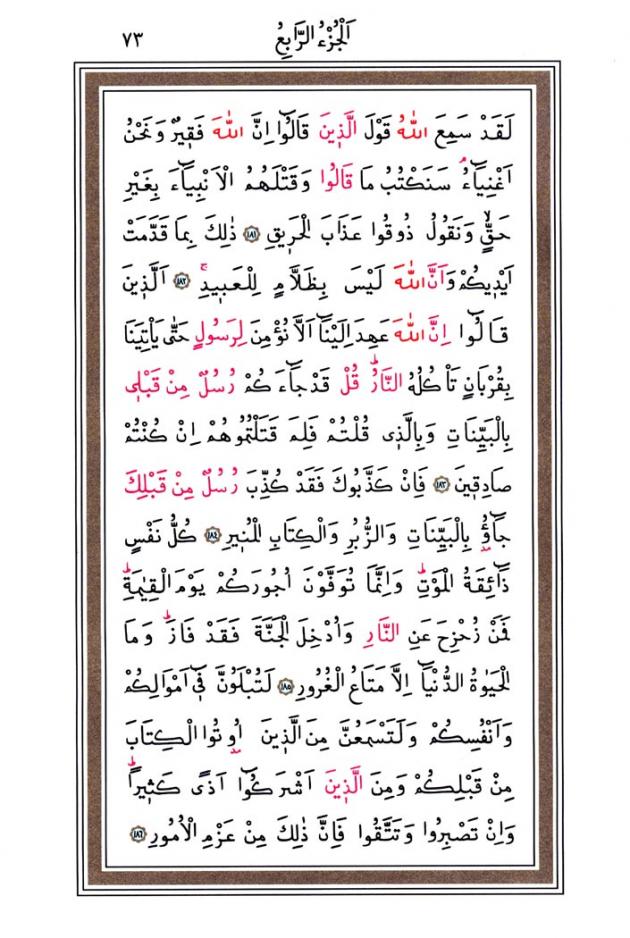 اَلْجُزْءُ الرَّابِعُ ٧٣
لَقَدْ سَمِعَ اللّٰهُ قَوْلَ الَّذ۪ينَ قَالُٓوا اِنَّ اللّٰهَ فَق۪يرٌ وَنَحْنُ
اَغْنِيَٓاءُۢ سَنَكْتُبُ مَا قَالُوا وَقَتْلَهُمُ الْاَنْبِيَٓاءَ بِغَيْرِ
حَقٍّۙ وَنَقُولُ ذُوقُوا عَذَابَ الْحَر۪يقِ ﴿١٨١﴾ ذٰلِكَ بِمَا قَدَّمَتْ
اَيْد۪يكُمْ وَاَنَّ اللّٰهَ لَيْسَ بِظَلَّامٍ لِلْعَب۪يدِۚ ﴿١٨٢﴾ اَلَّذ۪ينَ
قَالُٓوا اِنَّ اللّٰهَ عَهِدَ اِلَيْنَٓا اَلَّا نُؤْمِنَ لِرَسُولٍ حَتّٰى يَأْتِيَنَا
بِقُرْبَانٍ تَأْكُلُهُ النَّارُۜ قُلْ قَدْ جَٓاءَكُمْ رُسُلٌ مِنْ قَبْل۪ي
بِالْبَيِّنَاتِ وَبِالَّذ۪ي قُلْتُمْ فَلِمَ قَتَلْتُمُوهُمْ اِنْ كُنْتُمْ
صَادِق۪ينَ ﴿١٨٣﴾ فَاِنْ كَذَّبُوكَ فَقَدْ كُذِّبَ رُسُلٌ مِنْ قَبْلِكَ
جَٓاؤُ۫ بِالْبَيِّنَاتِ وَالزُّبُرِ وَالْكِتَابِ الْمُن۪يرِ ﴿١٨٤﴾ كُلُّ نَفْسٍ
ذَٓائِقَةُ الْمَوْتِۜ وَاِنَّمَا تُوَفَّوْنَ اُجُورَكُمْ يَوْمَ الْقِيٰمَةِۜ
فَمَنْ زُحْزِحَ عَنِ النَّارِ وَاُدْخِلَ الْجَنَّةَ فَقَدْ فَازَۜ وَمَا
الْحَيٰوةُ الدُّنْيَٓا اِلَّا مَتَاعُ الْغُرُورِ ﴿١٨٥﴾ لَتُبْلَوُنَّ ف۪ٓي اَمْوَالِكُمْ
وَاَنْفُسِكُمْ وَلَتَسْمَعُنَّ مِنَ الَّذ۪ينَ اُو۫تُوا الْكِتَابَ
مِنْ قَبْلِكُمْ وَمِنَ الَّذ۪ينَ اَشْرَكُٓوا اَذًى كَث۪يرًاۜ
وَاِنْ تَصْبِرُوا وَتَتَّقُوا فَاِنَّ ذٰلِكَ مِنْ عَزْمِ الْاُمُورِ ﴿١٨٦﴾